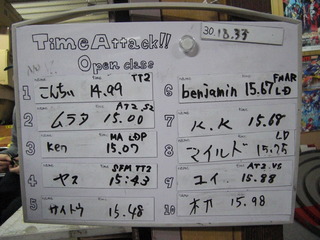 Time Attack!!
Open class
30.18.33
1 NAME こんちい 14.99 TT2
2 NAME ムラタ 15.00 AT2.S2
3 NAME Ken 15.07 MA LDP
4 NAME ヤス 15:43 SFM TT2
5 NAME サイトウ 15.48
6 NAME benjamin 15.67 FMAR LD
7 NAME K.K 15.68
8 NAME マイルド 15.75 LD
9 NAME ユイ 15.88 AT2.VS
10 NAME 15.98